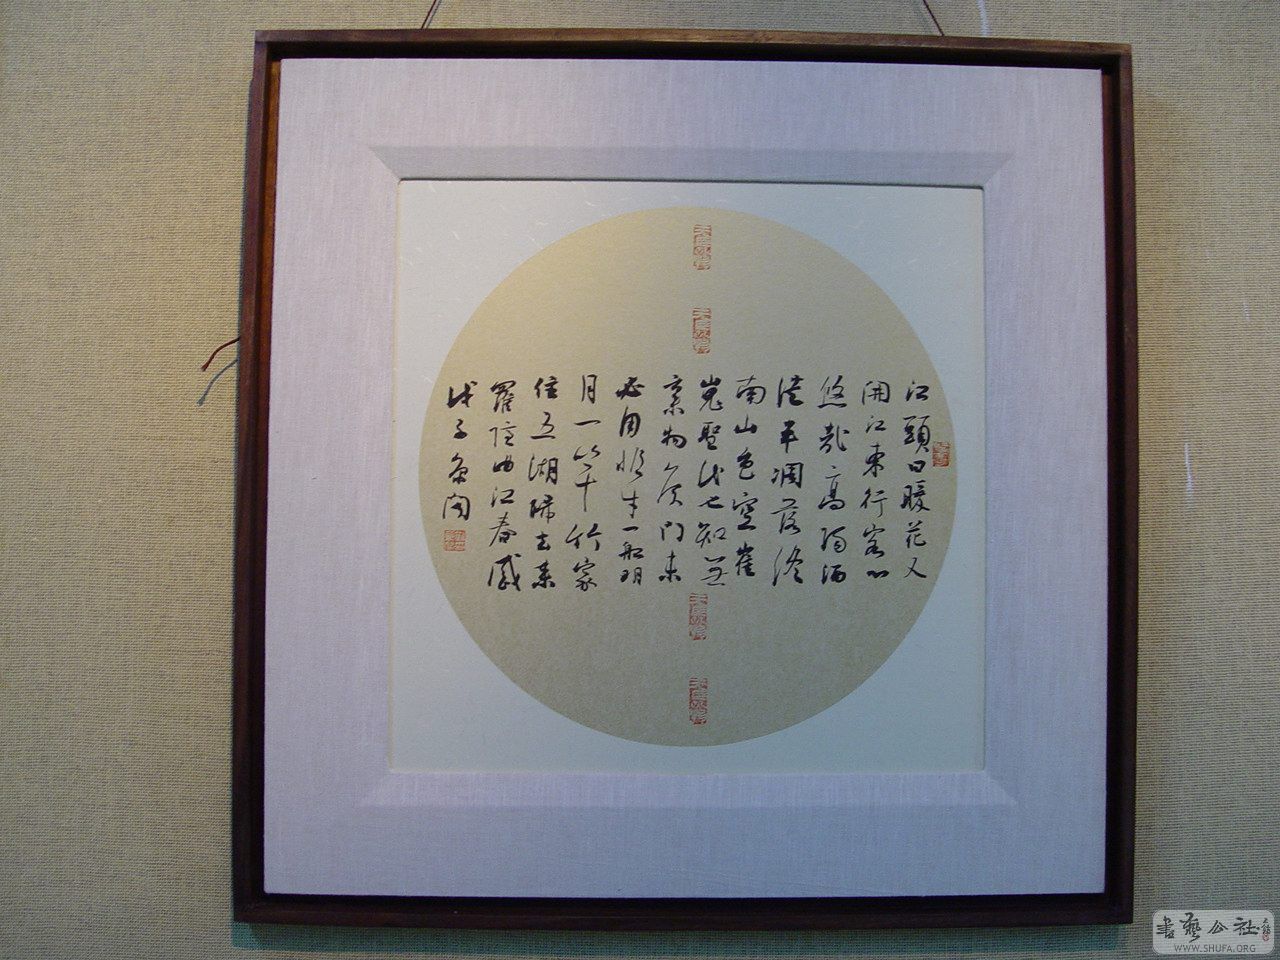 江頭日暖花又
開江東行客心
悠哉高陽酒
徒半凋落終
南山色空崔
嵬聖代也知無
棄物侯門未
必用非才一船明
月一竿竹家
住五湖歸去來
羅隱曲江春感
戊子
書藝公社
WWW.SHUFA.ORG